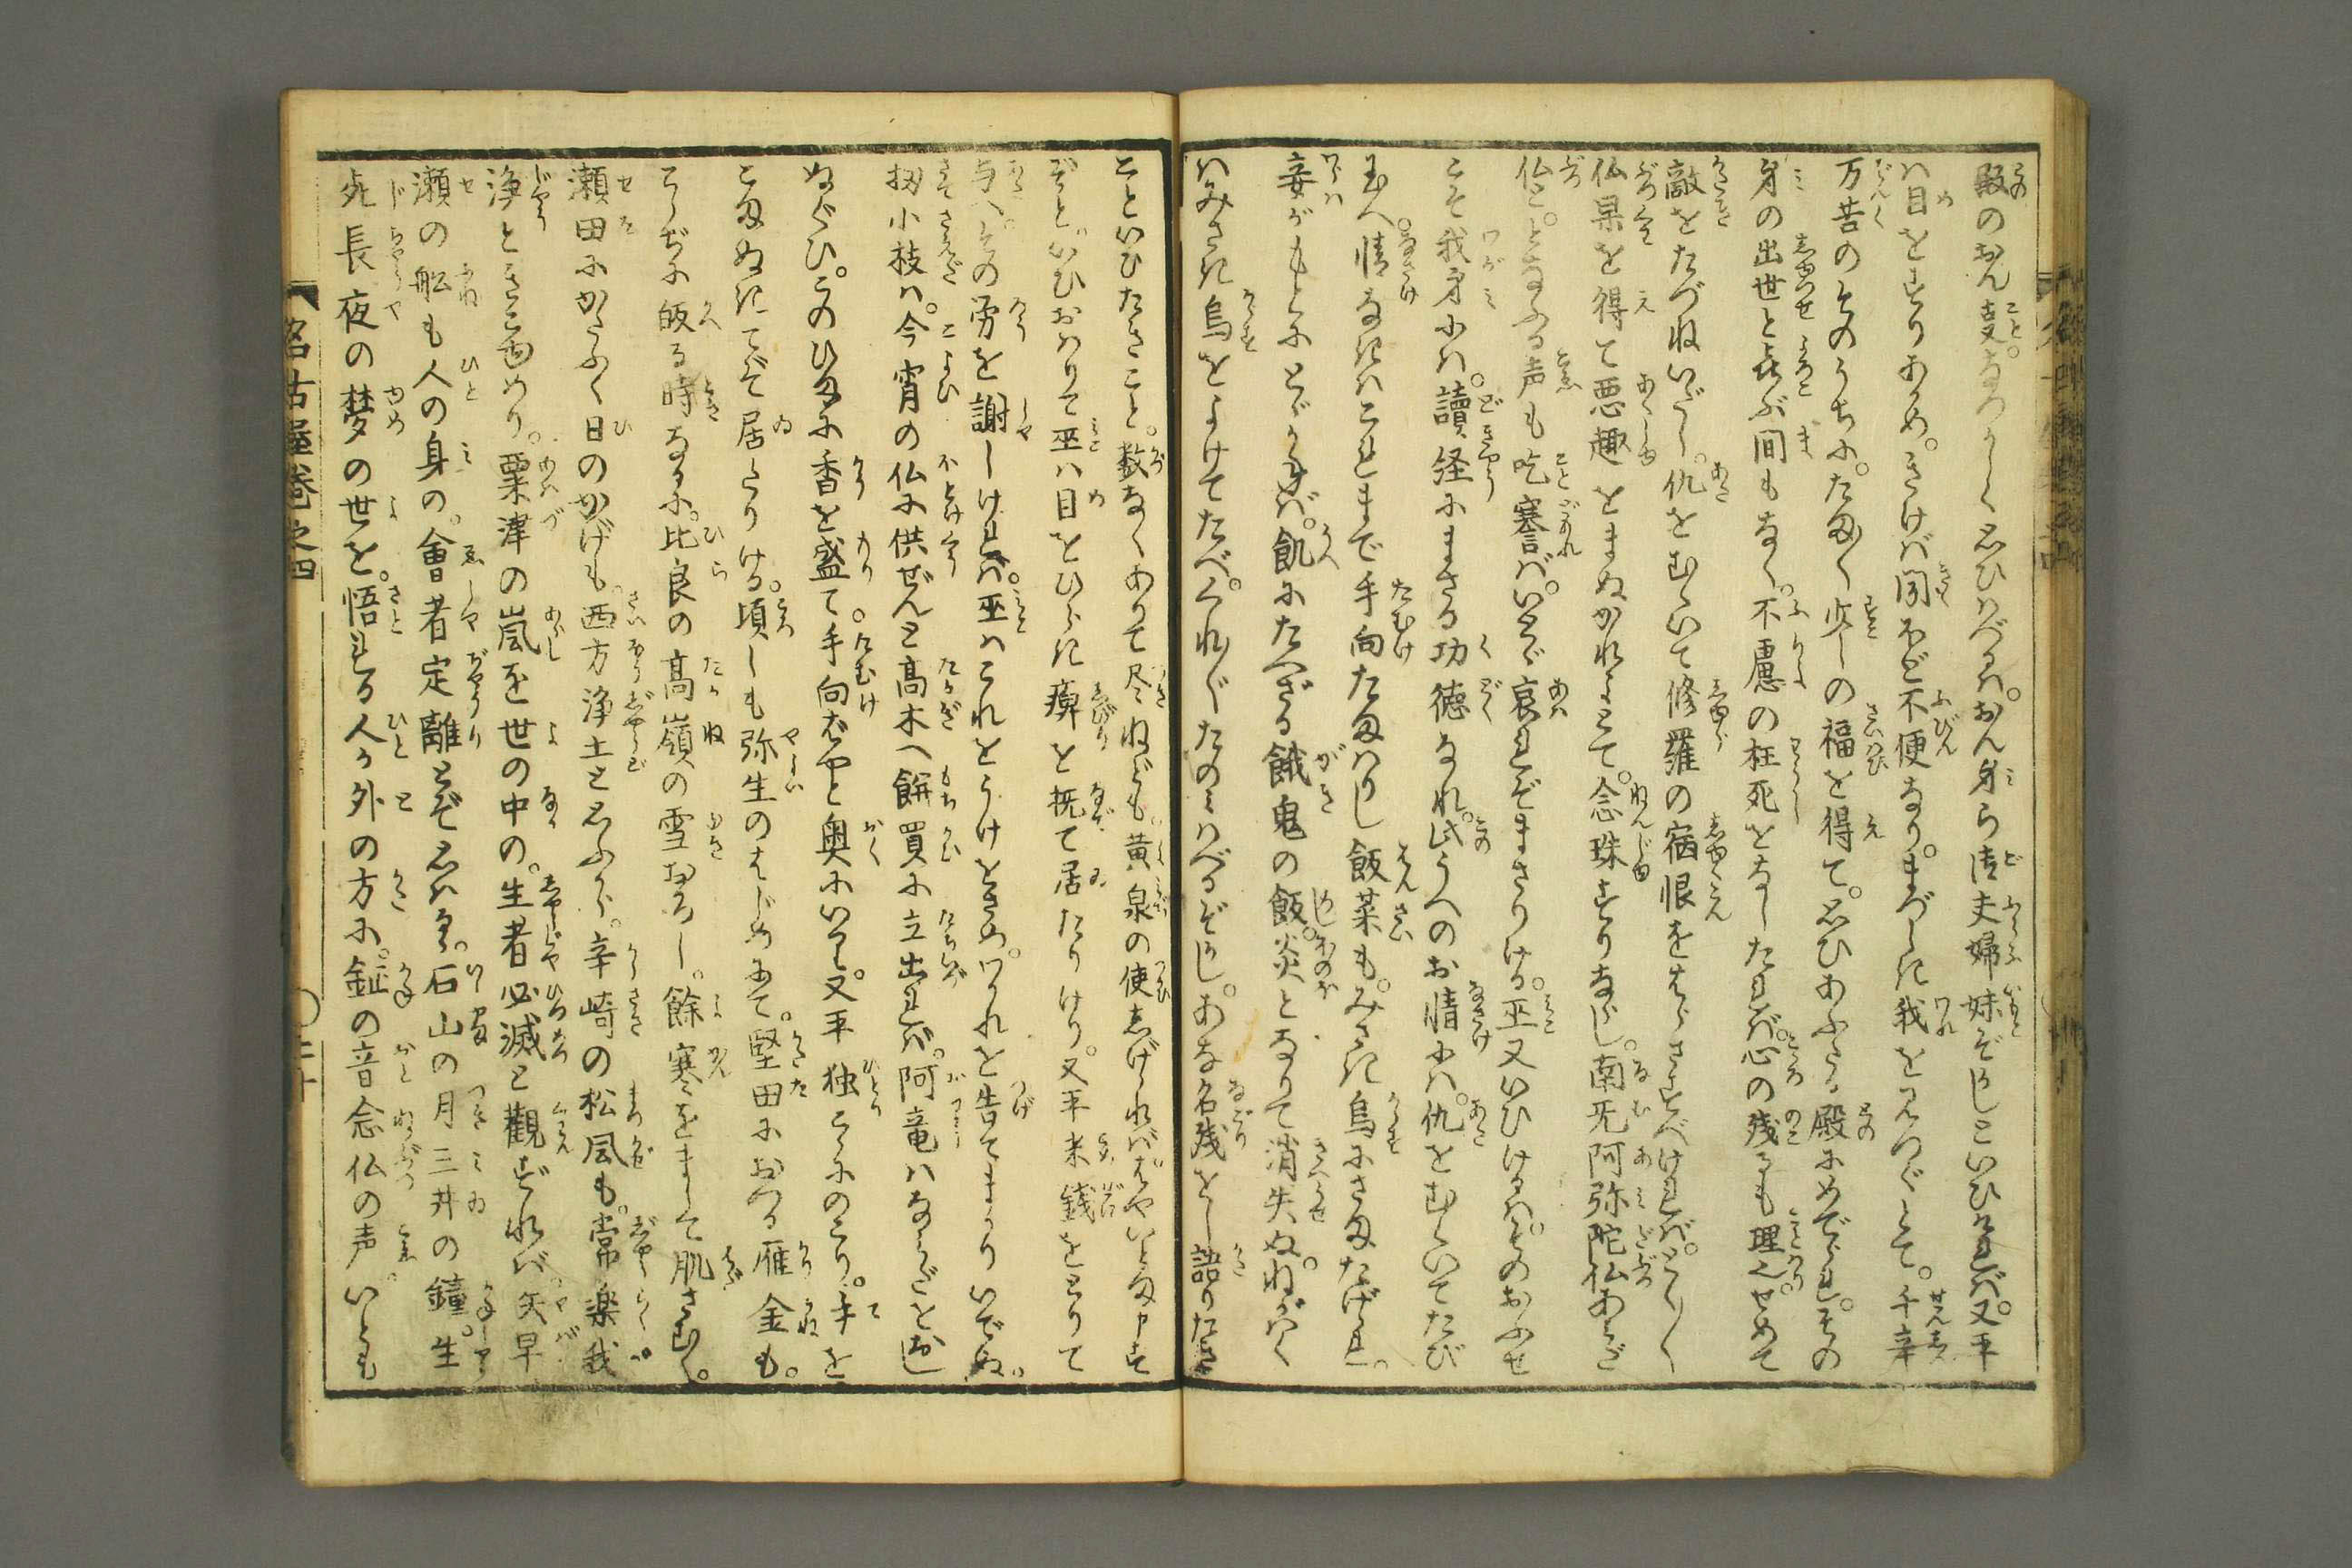 殿のおん事なつかしく思ひはべるは。おん身ら御夫婦妹ぞかしといひければ。又平
ハ目をすりあかめ。きけば聞ほど不便なり。まづしき我をみつぐとて。千辛
万苦のそのうちに。たま〳〵少しの福を得て。思ひあふたる殿にめでられ。その
身の出世と喜ぶ間もなく。不慮の枉死をなしたれば。心の残るも理り也。せめて
敵をたづねいだし。仇をむくいて修羅の宿恨をはらさすべければ。とく〳〵
仏果を得て悪趣をまぬかれよとて。念珠すりならし。南無阿弥陀仏あみだ
仏と。となふる声も吃謇ば。いとゞ哀れぞまさりける。巫又いひけるは。そのおふせ
こそ我身には。読経にまさる功徳なれ。此うへのお情には。仇をむくいてたび
玉へ。情なきはこれまで手向たまはりし飯菜も。みさき烏にさまたげられ。
妾がもとにとゞかねば。飢にたへざる餓鬼の飯。炎となりて消失ぬ。ねがはく
はみさき烏をよけてたべ。くれ〴〵たのみはべるぞかし。あな名残をし語りたき
こといひたきこと。数なくありて尽ねども。黄泉の使しげければはやいとま申す
ぞと。いひおはりて巫ハ目をひらき痺を撫て居たりけり。又平米銭をとりて
与へ。その労を謝しければ。巫ハこれをうけをさめ。わかれを告てまかりいでぬ。
扨小枝は。今宵の仏に供ぜんと高木へ餅買に立出れば。阿竜ハなみだを
ぬぐひ。このひまに香を盛て。手向ばやと奥にいる。又平独こゝにのこり。手を
こまぬきてぞ居たりける。頃しも弥生のはじめにて。堅田におつる雁金も。
こしぢに皈る時なるに。比良の高嶺の雪おろし。餘寒をまして肌さむく。
瀬田にかたふく日のかげも。西方浄土と思ふから。辛崎の松風も。常楽我
浄ときこゆめり。粟津の嵐を世の中の。生者必滅と観ずれば矢早
瀬の舩も人の身の。会者定離とぞ思はるゝ。石山の月三井の鐘。生
死長夜の夢の世を。悟れる人か外の方に。鉦の音念仏の声。いとも
名古屋巻之四
〇二十